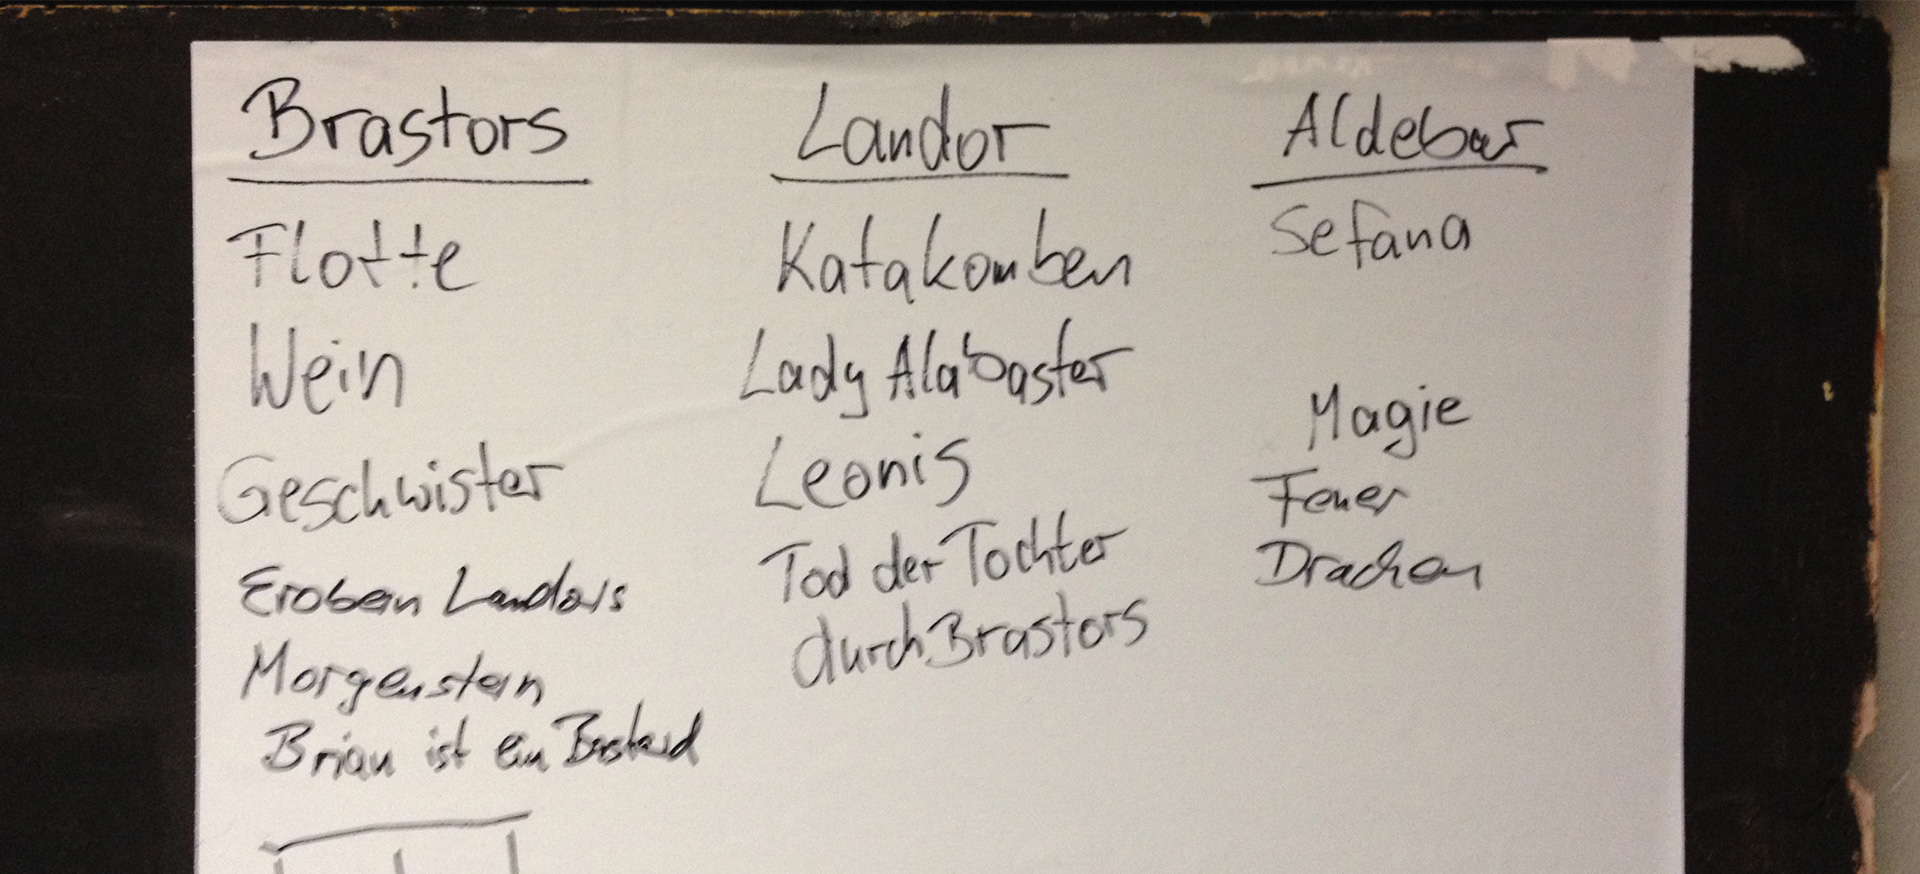 Brastors
Flotte
Wein
Geschwister
Erobern Landors
Morgenstern
Brian ist ein Bastard
Landor
Katakomben
Lady Alabaster
Leonis
Tod der Tochter
durch Brastors
Aldebar
Sefana
Magie
Feuer
Drachen